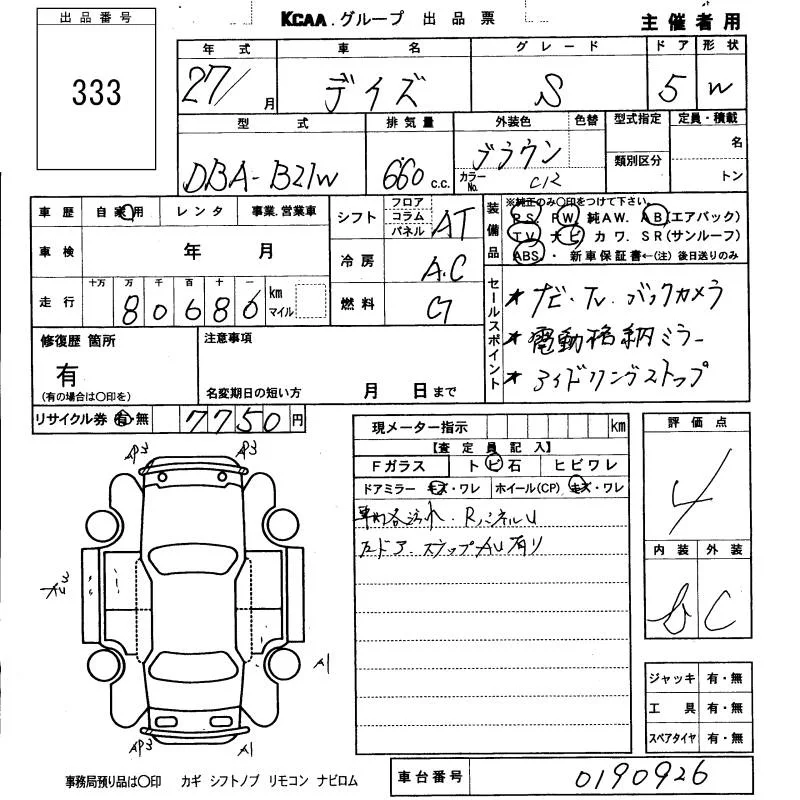 出品番号
333
KCAA.グループ 出品票
主催者用
年式 車名 グレード ドア 形状
27/ 月 デイズ S 5 W
型式 排気量 外装色 色替 型式指定 定員・積載
DBA-B21W 660 c.c. ブラウン 名
カラーNo. CR 類別区分 トン
車歴 自家用 レンタ 事業.営業車
シフト フロア コラム パネル AT
装備品 ※純正のみ○印をつけて下さい。
P.S. P.W. 純A.W. A.B(エアバック)
T.V. ナビ カワ. S.R(サンルーフ)
ABS. ・ 新車保証書←(注) 後日送りのみ
車検 年 月
冷房 A.C
走行 十万 万 千 百 十 一
80686 km マイル
燃料 G
セールスポイント
★ ナビ・TV・バックカメラ
★ 電動格納ミラー
★ アイドリングストップ
修復歴 箇所
有
(有の場合は○印を)
注意事項
名変期日の短い方 月 日まで
リサイクル券 有・無 7750円
現メーター指示 km
【査定員記入】
Fガラス トビ石 ヒビワレ
ドアミラー キズ・ワレ ホイール(CP) キズ・ワレ
車内各汚れ.
左ドア. ステップAU有り
評価点
4
内装 外装
b C
AP3 A2
A1
AP3 A1
ジャッキ 有・無
工具 有・無
スペアタイヤ 有・無
事務局預り品は○印 カギ シフトノブ リモコン ナビロム
車台番号 0190926